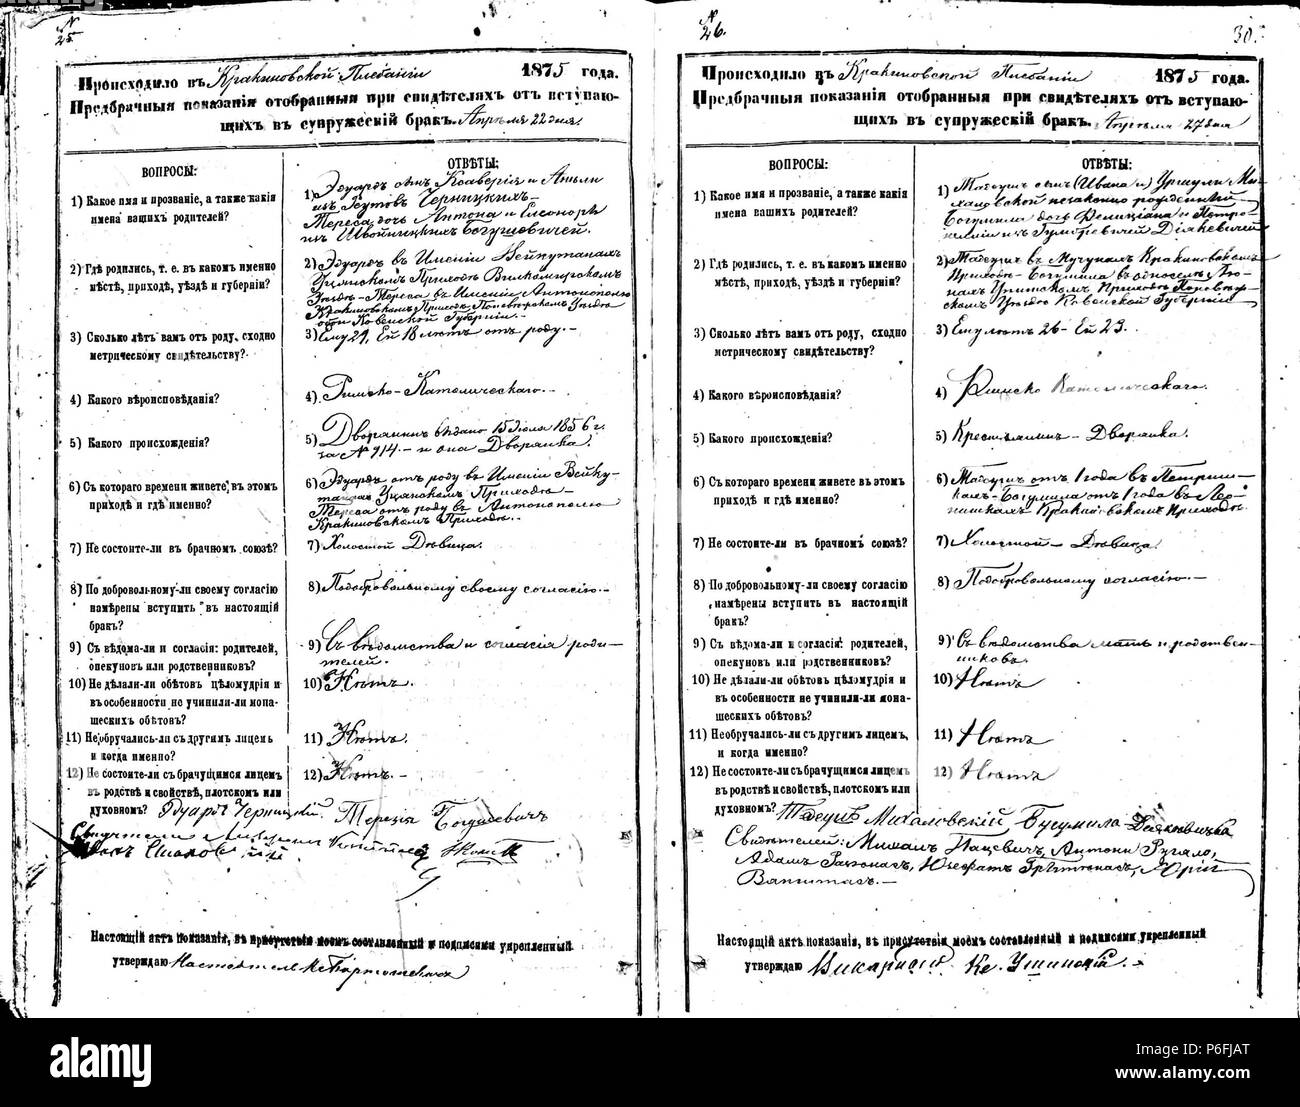 N 25.
Происходило въ Кракиновской Плебаніи 1875 года.
Предбрачныя показанія отобранныя при свидѣтеляхъ отъ вступаю-
щихъ въ супружескій бракъ. Апрѣля 22 дня
ВОПРОСЫ: ОТВѢТЫ:
1) Какое имя и прозваніе, а также какія
имена вашихъ родителей?
1) Эдуардъ сынъ Ксаверія и Анели
изъ Черницкихъ
Тереса дочь Антона и Елеоноры
изъ Богушевичей.
2) Гдѣ родились, т. е. въ какомъ именно
мѣстѣ, приходѣ, уѣздѣ и губерніи?
2) Эдуардъ въ Имѣніи Вейкутанахъ
Уцянскомъ Приходѣ Вилкомирскомъ
Уѣздѣ - Тереса въ Имѣніи Антонополю
Кракиновскомъ Приходѣ Поневѣжскомъ Уѣздѣ
Ковенской Губерніи.
3) Сколько лѣтъ вамъ отъ роду, сходно
метрическому свидѣтельству?
3) Ему 21, Ей 18 лѣтъ отъ роду.
4) Какого вѣроисповѣданія?
4) Римско-Католическаго.
5) Какого происхожденія?
5) Дворянинъ 15 Іюля 1856 г.
за № 914. - и она Дворянка.
6) Съ котораго времени живете въ этомъ
приходѣ и гдѣ именно?
6) Эдуардъ отъ роду въ Имѣніи Вейку-
танахъ Уцянскомъ Приходѣ -
Тереса отъ роду въ Антонополю
Кракиновскомъ Приходѣ.
7) Не состоите-ли въ брачномъ союзѣ?
7) Холостой Дѣвица.
8) По добровольному-ли своему согласію
намѣрены вступить въ настоящій
бракъ?
8) По добровольному своему согласію.
9) Съ вѣдома-ли и согласія: родителей,
опекуновъ или родственниковъ?
9) Съ вѣдомства и согласія роди-
телей.
10) Не дѣлали-ли обѣтовъ цѣломудрія и
въ особенности не учинили-ли мона-
шескихъ обѣтовъ?
10) Нѣтъ.
11) Необручались-ли съ другимъ лицемъ
и когда именно?
11) Нѣтъ.
12) Не состоите-ли съ брачущимся лицемъ
въ родствѣ и свойствѣ, плотскомъ или
духовномъ?
12) Нѣтъ.
Эдуардъ Черницкій. Терезія Богушевичъ
Свидѣтели
Настоящій актъ показанія, въ присутствіи моемъ составленный и подписями укрепленный
утверждаю Настоятель
N 26.
30.
Происходило въ Кракиновской Плебаніи 1875 года.
Предбрачныя показанія отобранныя при свидѣтеляхъ отъ вступаю-
щихъ въ супружескій бракъ. Апрѣля 27 дня
ВОПРОСЫ: ОТВѢТЫ:
1) Какое имя и прозваніе, а также какія
имена вашихъ родителей?
1) Тадеушъ сынъ (Ивана и) Уршули Ми-
халовской незаконно рожденный
Богумила дочь Фелиціана и Петро-
неліи изъ Дѣякевичей
2) Гдѣ родились, т. е. въ какомъ именно
мѣстѣ, приходѣ, уѣздѣ и губерніи?
2) Тадеушъ въ Кракиновскомъ
Приходѣ - Богумила въ
Приходѣ Поневѣж-
скомъ Уѣздѣ Ковенской Губерніи
3) Сколько лѣтъ вамъ отъ роду, сходно
метрическому свидѣтельству?
3) Ему лѣтъ 26 - Ей 23.
4) Какого вѣроисповѣданія?
4) Римско Католическаго.
5) Какого происхожденія?
5) Крестьянинъ - Дворянка.
6) Съ котораго времени живете въ этомъ
приходѣ и гдѣ именно?
6) Тадеушъ отъ 1 года въ Петриш-
кахъ - Богумила отъ 1 года въ
Кракиновскомъ Приходѣ.
7) Не состоите-ли въ брачномъ союзѣ?
7) Холостой - Дѣвица.
8) По добровольному-ли своему согласію
намѣрены вступить въ настоящій
бракъ?
8) По добровольному согласію.
9) Съ вѣдома-ли и согласія: родителей,
опекуновъ или родственниковъ?
9) Съ вѣдомства мать и родствен-
никовъ.
10) Не дѣлали-ли обѣтовъ цѣломудрія и
въ особенности не учинили-ли мона-
шескихъ обѣтовъ?
10) Нѣтъ
11) Необручались-ли съ другимъ лицемъ,
и когда именно?
11) Нѣтъ
12) Не состоите-ли съ брачущимся лицемъ
въ родствѣ и свойствѣ, плотскомъ или
духовномъ?
12) Нѣтъ
Тадеушъ Михаловскій Богумила
Свидѣтелей: Михаилъ Пацевичъ, Антони Ругяло,
Адамъ Юзефатъ
Настоящій актъ показанія, въ присутствіи моемъ составленный и подписями укрепленный
утверждаю Викарный Кс. Ушинскій.
alamy
Image ID: P6FJAT
www.alamy.com